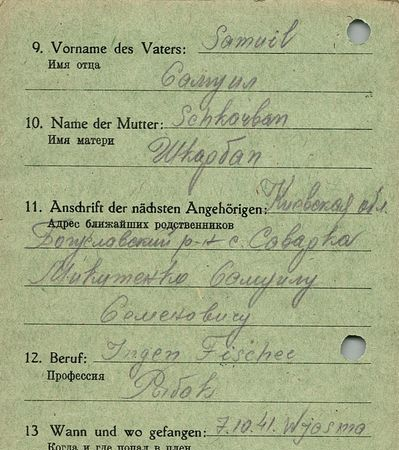 9. Vorname des Vaters: Samuil
Имя отца
Самуил
10. Name der Mutter: Schkarban
Имя матери
Шкарбан
11. Anschrift der nächsten Angehörigen: Киевская обл.
Адрес ближайших родственников
Богуславский р-н с. Саварка
Микитенко Самуилу
Семеновичу
12. Beruf: Fischer
Профессия
Рыбак
13 Wann und wo gefangen: 7.10.41. Wjasma
Когда и где попал в плен